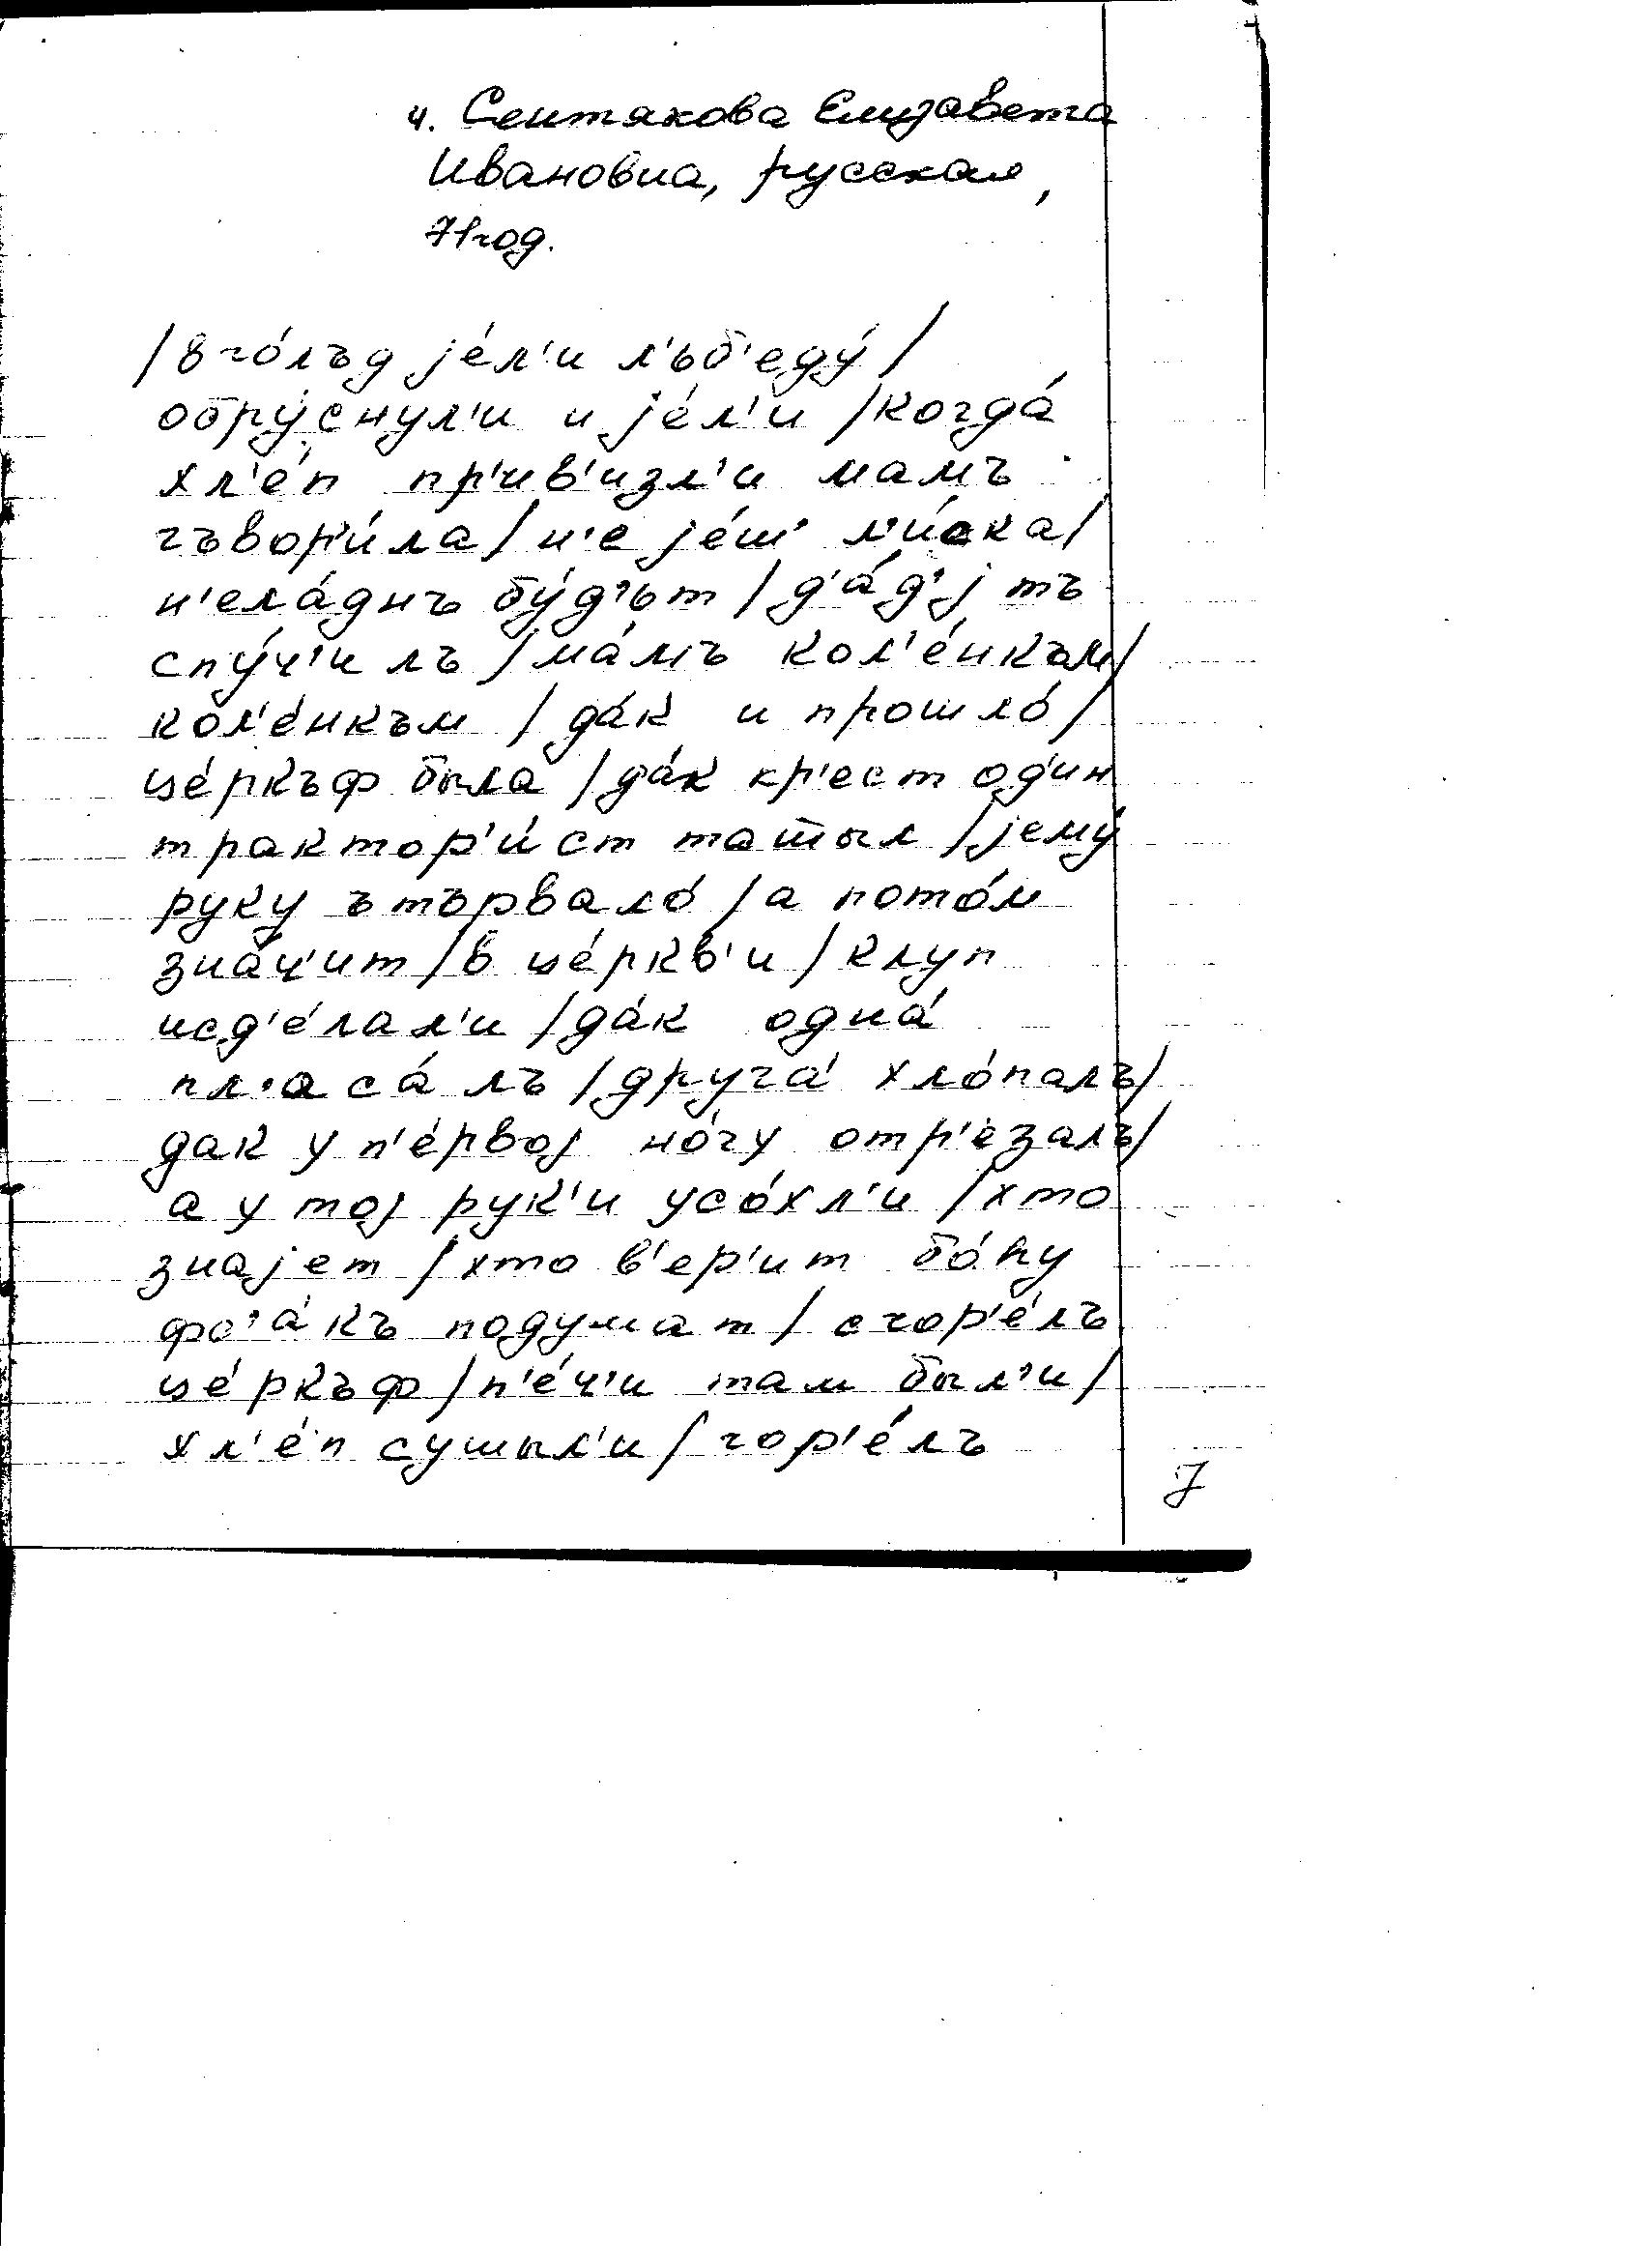 4. Сентякова Елизавета
Ивановна, русская,
71год.
/в го́лъд jе́л'и л'ъб'еду́/
обру́снул'и и jе́л'и /когда́
хл'е́п пр'ив'изл'и мамъ
гъвор'и́ла/ н'е jе́ш' л'и́ска/
н'ела́днъ бу́д'ът /д'а́д'j тъ
спу́ч'и лъ /ма́мъ кол'е́нкъм/
кол'е́нкъм /да́к и прошло́/
це́ркъф была /да́к кр'ест од'ин
трактор'и́ст тащыл /jему́
руку ътървало́ /а пото́м
зна́ч'ит /в це́ркв'и /клуп
исд'е́лал'и /да́к одна́
пл'аса́ лъ /друга́ хло́палъ/
дак у п'е́рвоj но́гу отр'е́залъ/
а у тоj рук'и усо́хл'и /хто
знаjет /хто в'ер'ит бо́hу
фс'а́къ подумат/ сгор'е́лъ
це́ркъф /п'е́ч'и там был'и/
хл'е́п сушыл'и/ гор'е́лъ
7